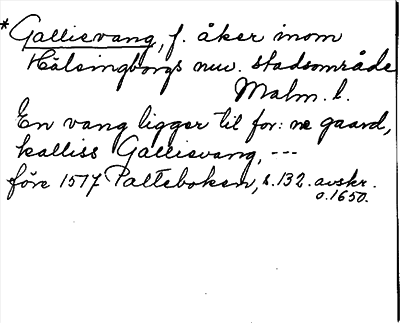 *Gallisvang, f. åker inom
Hälsingborgs nuv. stadsområde
Malm. l.
En vang ligger til for: ne gaard,
kalliss Gallisvang, ---
före 1517 Palteboken, s. 132. avskr.
o. 1650.